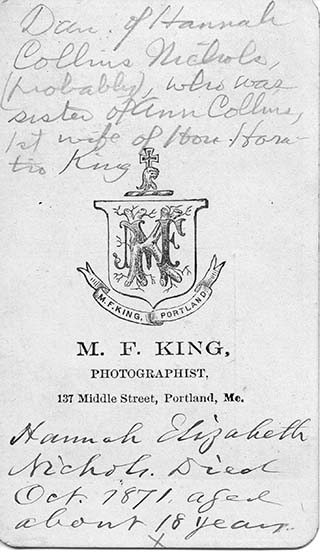 Dau. of Hannah
Collins Nichols,
(probably), who was
sister of Ann Collins,
1st wife of Hon. Hora-
tio King
MFK
M. F. KING, PORTLAND
M. F. KING,
PHOTOGRAPHIST,
137 Middle Street, Portland, Me.
Hannah Elizabeth
Nichols. Died
Oct. 1871, aged
about 18 years.
x